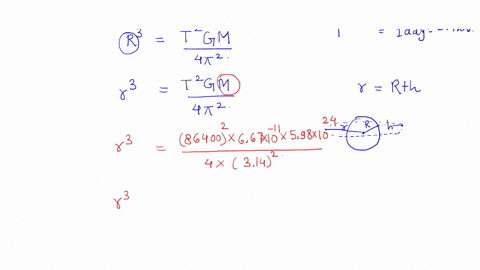 R³ = T²GM / 4π²
T = 1day
r³ = T²GM / 4π²
r = R+h
r³ = (86400)² × 6.67×10⁻¹¹ × 5.98×10²⁴ / 4 × (3.14)²
r R h
r³